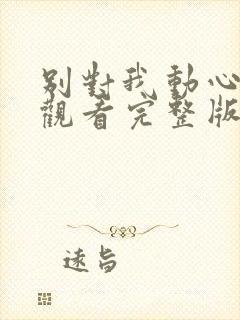 别對我動心
觀看完整版
遠旨